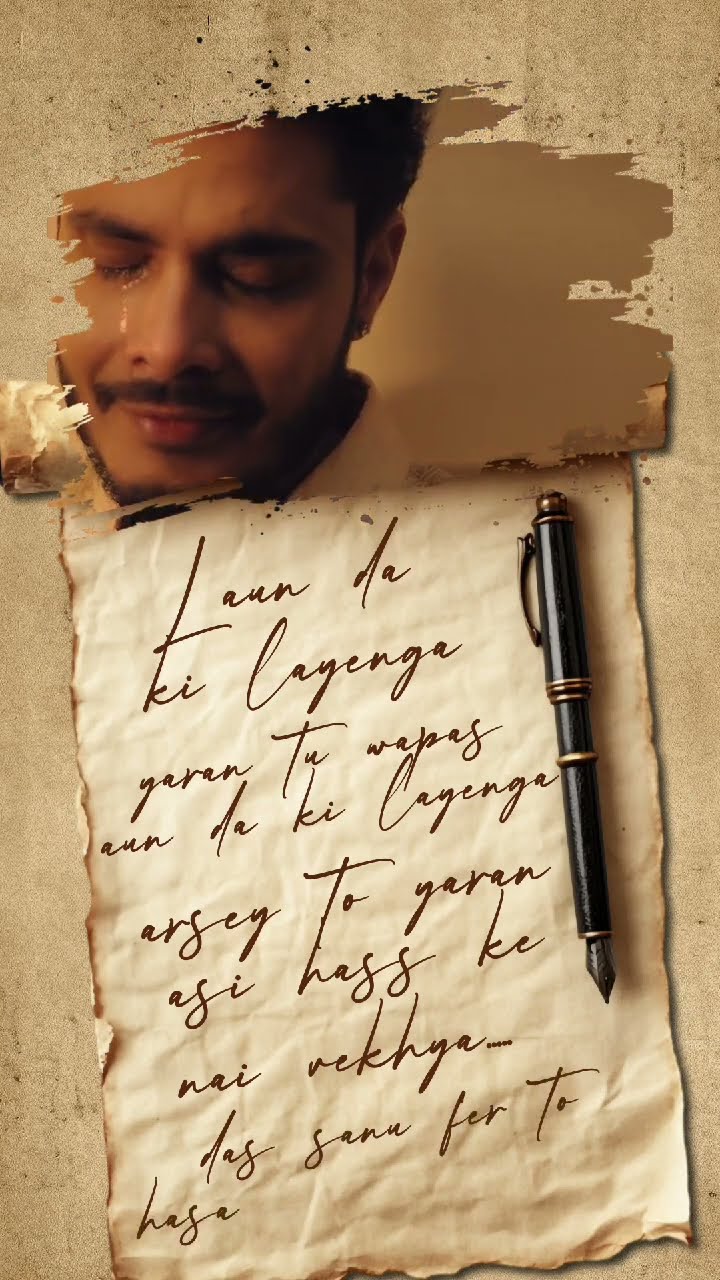 Laun da
ki layenga
yaran tu wapas
aun da ki layenga
arsey to yaran
asi hass ke
nai vekhya.....
das sanu fer to
hasa